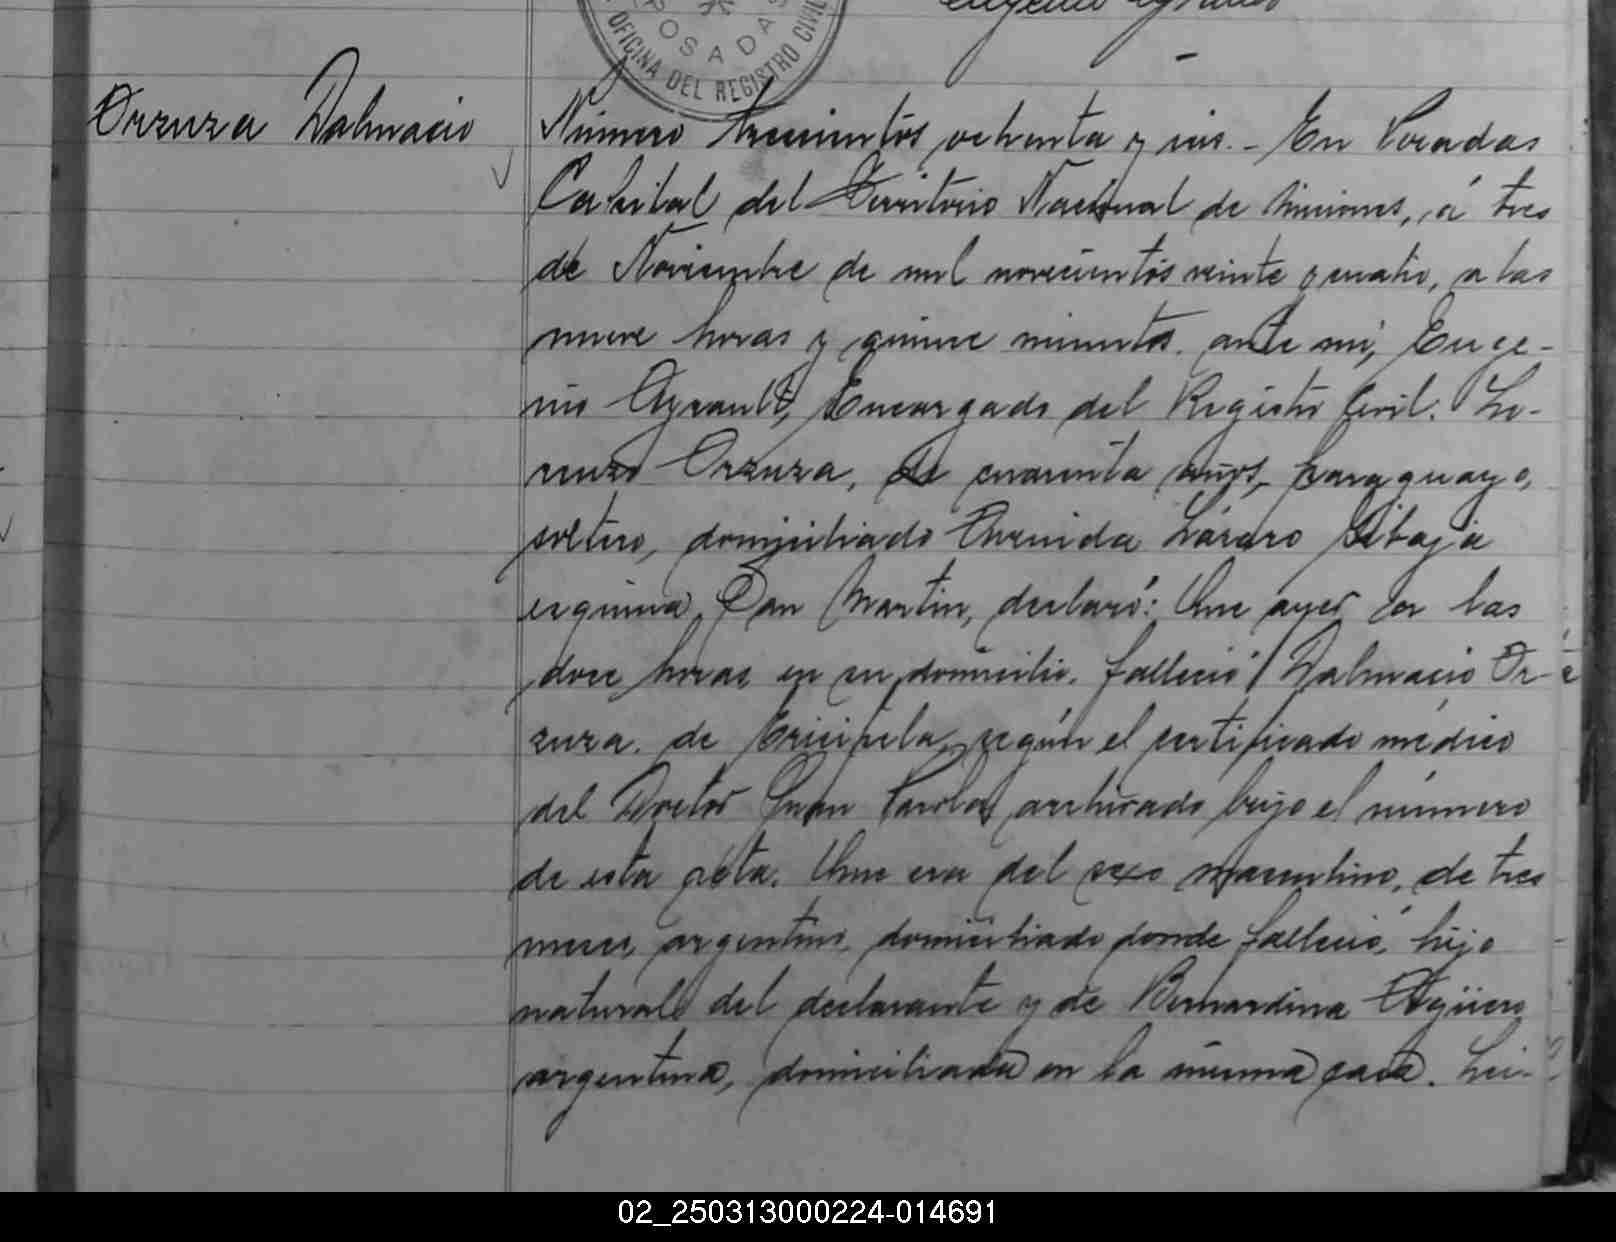 POSADAS
OFICINA DEL REGISTRO CIVIL
Orzuza Dalmacio
Número trescientos ochenta y seis.- En Posadas
Capital del Territorio Nacional de Misiones, á tres
de Noviembre de mil novecientos veinte y cuatro, a las
nueve horas y quince minutos. ante mí, Euge-
nio Ayrault, Encargado del Registro Civil: Lo-
renzo Orzuza, de cuarenta años, paraguayo,
soltero, domiciliado Avenida Lázaro Gibaja
esquina San Martin, declaró: Que ayer a las
doce horas en su domicilio. falleció Dalmacio Or-
zuza. de Ericipela, según el certificado médico
del Doctor Juan archivado bajo el número
de esta acta. Que era del sexo masculino, de tres
meses, argentino, domiciliado donde falleció, hijo
natural del declarante y de Bernardina Agüero
argentina, domiciliada en la misma casa. Lei-
02_250313000224-014691